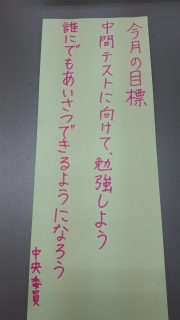 今月の目標
中間テストに向けて、勉強しよう
誰にでもあいさつできるようになろう
中央委員